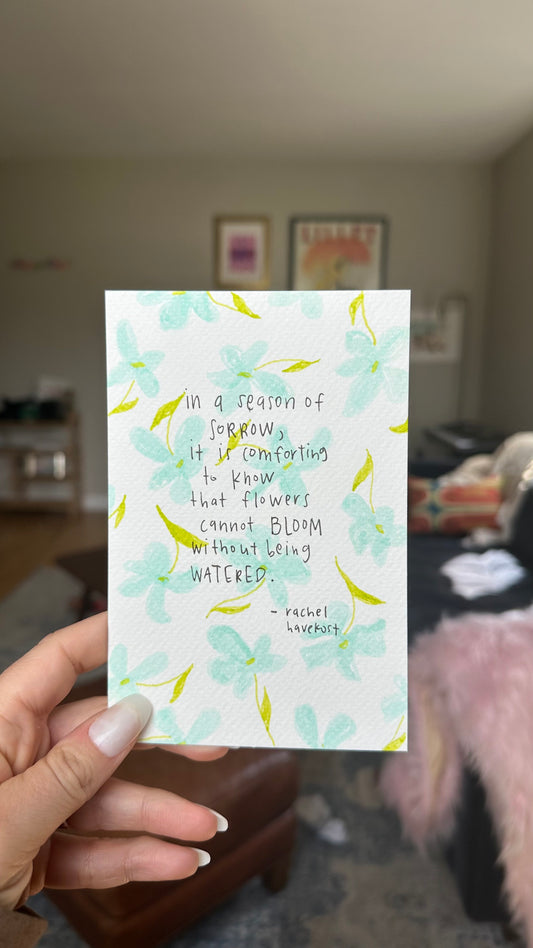 LILLET
in a season of
SORROW,
it is comforting
to know
that flowers
cannot BLOOM
without being
WATERED.
- rachel
havekost